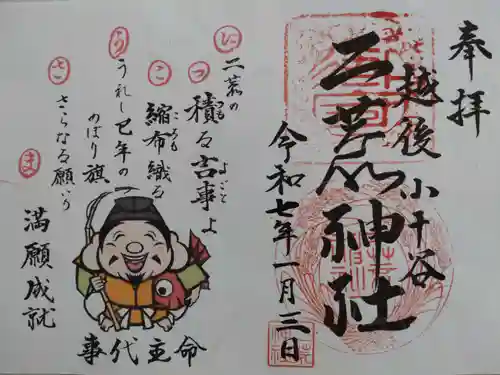 奉拝
越後小十谷
二荒神社
令和七年一月三日
に
二荒の
つ
積る吉事よ
つも
よごと
こ
縮布織る
ころも
う
うれし巳年の
のぼり旗
さ
さらなる願いが
ま
満願成就
事代主命